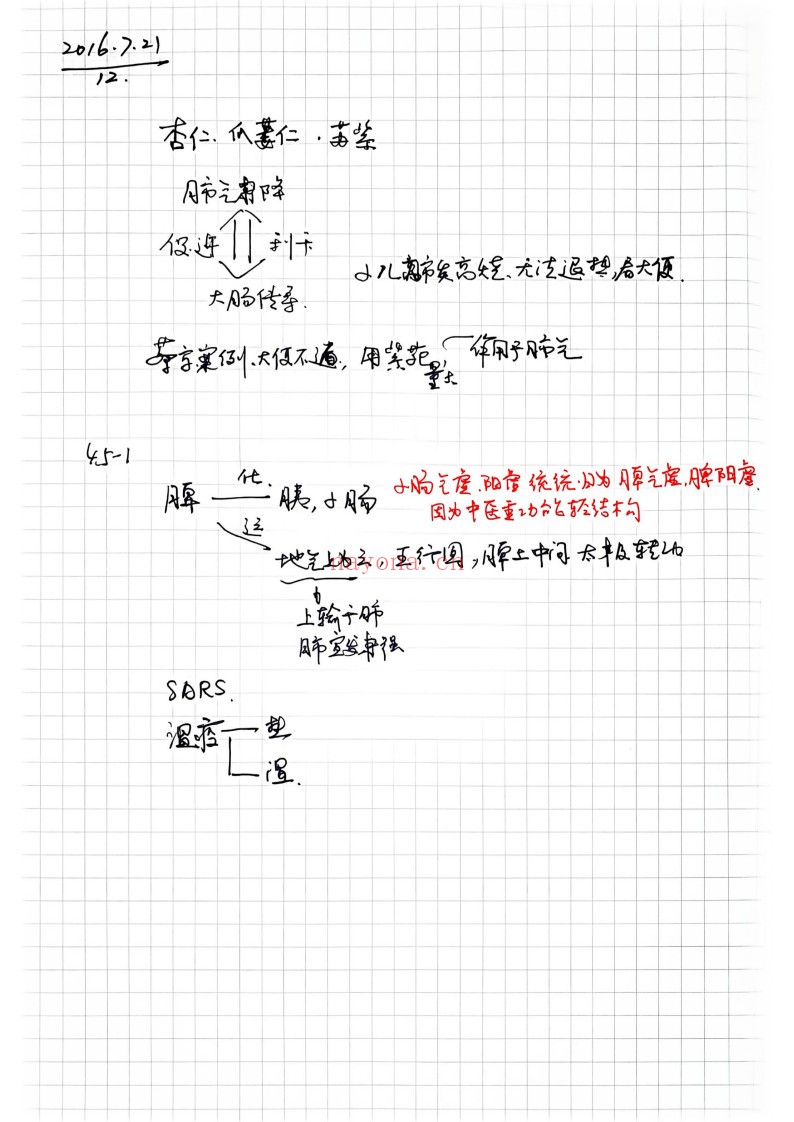 2016.7.21
12.
杏仁、瓜蒌仁、苗紫
肺气肃降
促进 利于
大肠传导.
小儿高烧、无法退热,看大便.
蔡京案例、大便不通,用紫菀,作用于肺气
量大
45-1
脾 化 胰,小肠
小肠气虚.阳虚统统归为脾气虚,脾阳虚.
因为中医重功能轻结构
运
地气上为云,五行图,脾土中间 太极转动
上输于肺
肺宣发
SARS.
温疫 热
湿.
nayona.cn